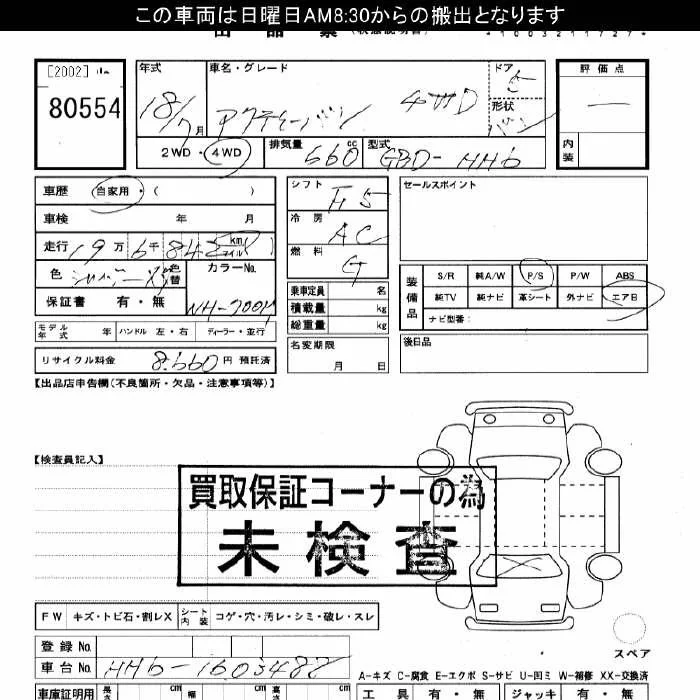 この車両は日曜日AM8:30からの搬出となります
[2002]
80554
年式
18/7月
車名・グレード
アクティーバン 4WD
ドア
5
形状
バン
評価点
—
内装
2WD・4WD
排気量 660 cc
型式 GBD-HH6
車歴 自家用・( )
車検 年 月
走行 19万6千842 km マイル
色 シルバーM 色替
カラーNo.
NH-700M
保証書 有・無
モデル年式 年 ハンドル 左・右 ディーラー・並行
リサイクル料金 8,660円 預託済
シフト F5
冷房 AC
燃料 G
乗車定員 名
積載量 kg
総重量 kg
名変期限
月 日
セールスポイント
装備品
S/R 純A/W P/S P/W ABS
純TV 純ナビ 革シート 外ナビ エアB
ナビ型番:
後日品
【出品店申告欄(不良箇所・欠品・注意事項等)】
【検査員記入】
買取保証コーナーの為
未検査
FW キズ・トビ石・割レX
シート内装 コゲ・穴・汚レ・シミ・破レ・スレ
スペア
登録No.
車台No. HH6-1603487
A-キズ C-腐食 E-エクボ S-サビ U-凹ミ W-補修 XX-交換済
車庫証明用 長さ cm 幅 cm 高さ cm
工具 有・無 ジャッキ 有・無